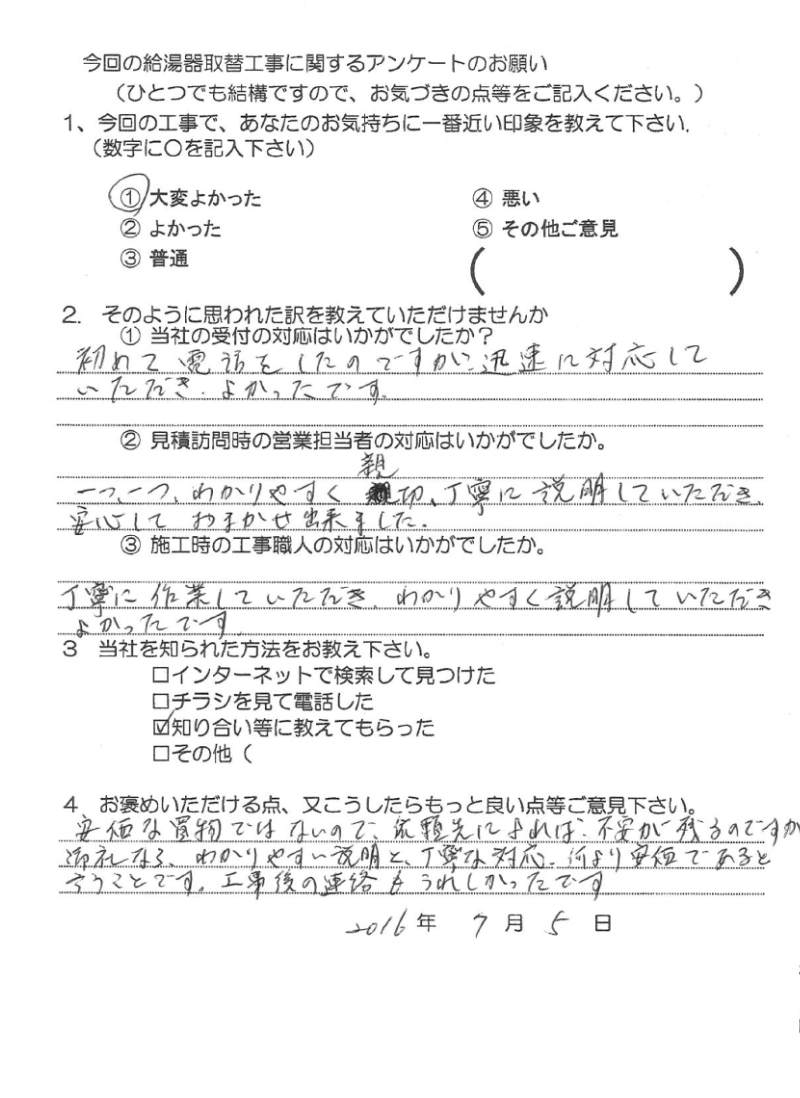 今回の給湯器取替工事に関するアンケートのお願い
（ひとつでも結構ですので、お気づきの点等をご記入ください。）
1、今回の工事で、あなたのお気持ちに一番近い印象を教えて下さい.
（数字に〇を記入下さい）
① 大変よかった ④ 悪い
② よかった ⑤ その他ご意見
③ 普通 （ ）
2. そのように思われた訳を教えていただけませんか
① 当社の受付の対応はいかがでしたか？
初めて電話をしたのですが、迅速に対応して
いただき、よかったです。
② 見積訪問時の営業担当者の対応はいかがでしたか。
一つ、一つ、わかりやすく親切、丁寧に説明していただき、
安心しておまかせ出来ました。
③ 施工時の工事職人の対応はいかがでしたか。
丁寧に作業していただき、わかりやすく説明していただき
よかったです。
3 当社を知られた方法をお教え下さい。
□インターネットで検索して見つけた
□チラシを見て電話した
☑知り合い等に教えてもらった
□その他（
4 お褒めいただける点、又こうしたらもっと良い点等ご意見下さい。
安価な買物ではないので、依頼先によれば、不安が残るのですが
わかりやすい説明と、丁寧な対応、何より安価であると
言うことです。工事後の連絡もうれしかったです
2016年 7月 5日